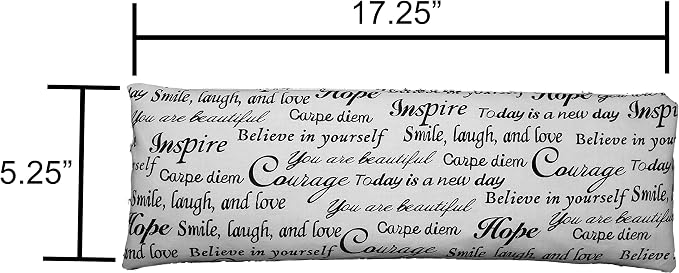 17.25”
5.25”
ay Smile, laugh, and love Hope
You are beautiful Carpe diem Inspire Today is a new day Inspi
Believe in yourself Smile, laugh, and love Believe in
Inspire You are beautiful Carpe diem Courage Today
self Carpe diem Courage Today is a new day
Smile, laugh, and love Believe in yourself Smile,
You are beautiful You are beautiful
Hope Smile, laugh, and love Carpe diem Hope Carpe diem
nd love Believe in yourself Courage Smile, laugh, and love Believe